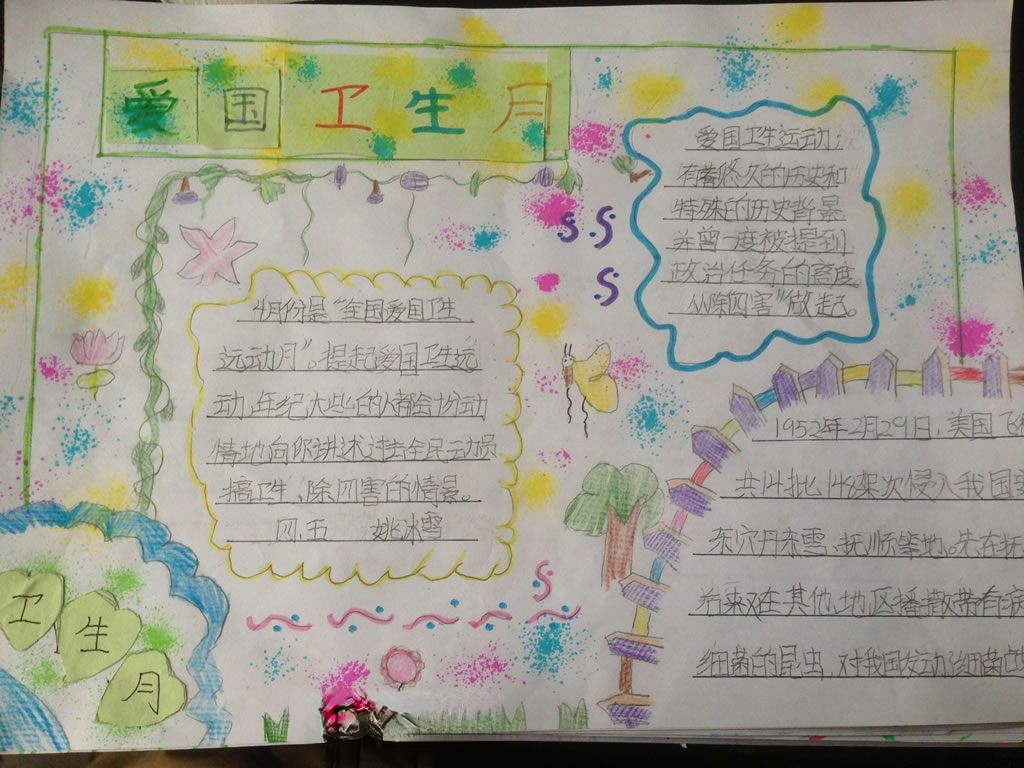 爱国卫生月
爱国卫生运动：
有着悠久的历史和
特殊的历史背景
并曾一度被提到
政治任务的高度
从除四害"做起。
4月份是"全国爱国卫生
运动月"。提起爱国卫生运
动,年纪大些的人都会
情地向你讲述过去全民动员
搞卫生、除四害的情景。
四.五 姚冰雪
1952年2月29日,美国飞
共14批,148架次侵入我国
东 、抚顺等地。先在抚
在其他地区播散带有病
细菌的昆虫,对我国发动细菌
卫
生
月